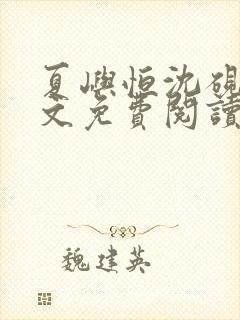 夏嶼恒沈硯
文免費閱讀
魏建英